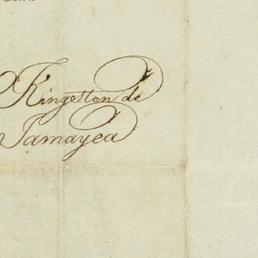 Kingston de
Jamayca